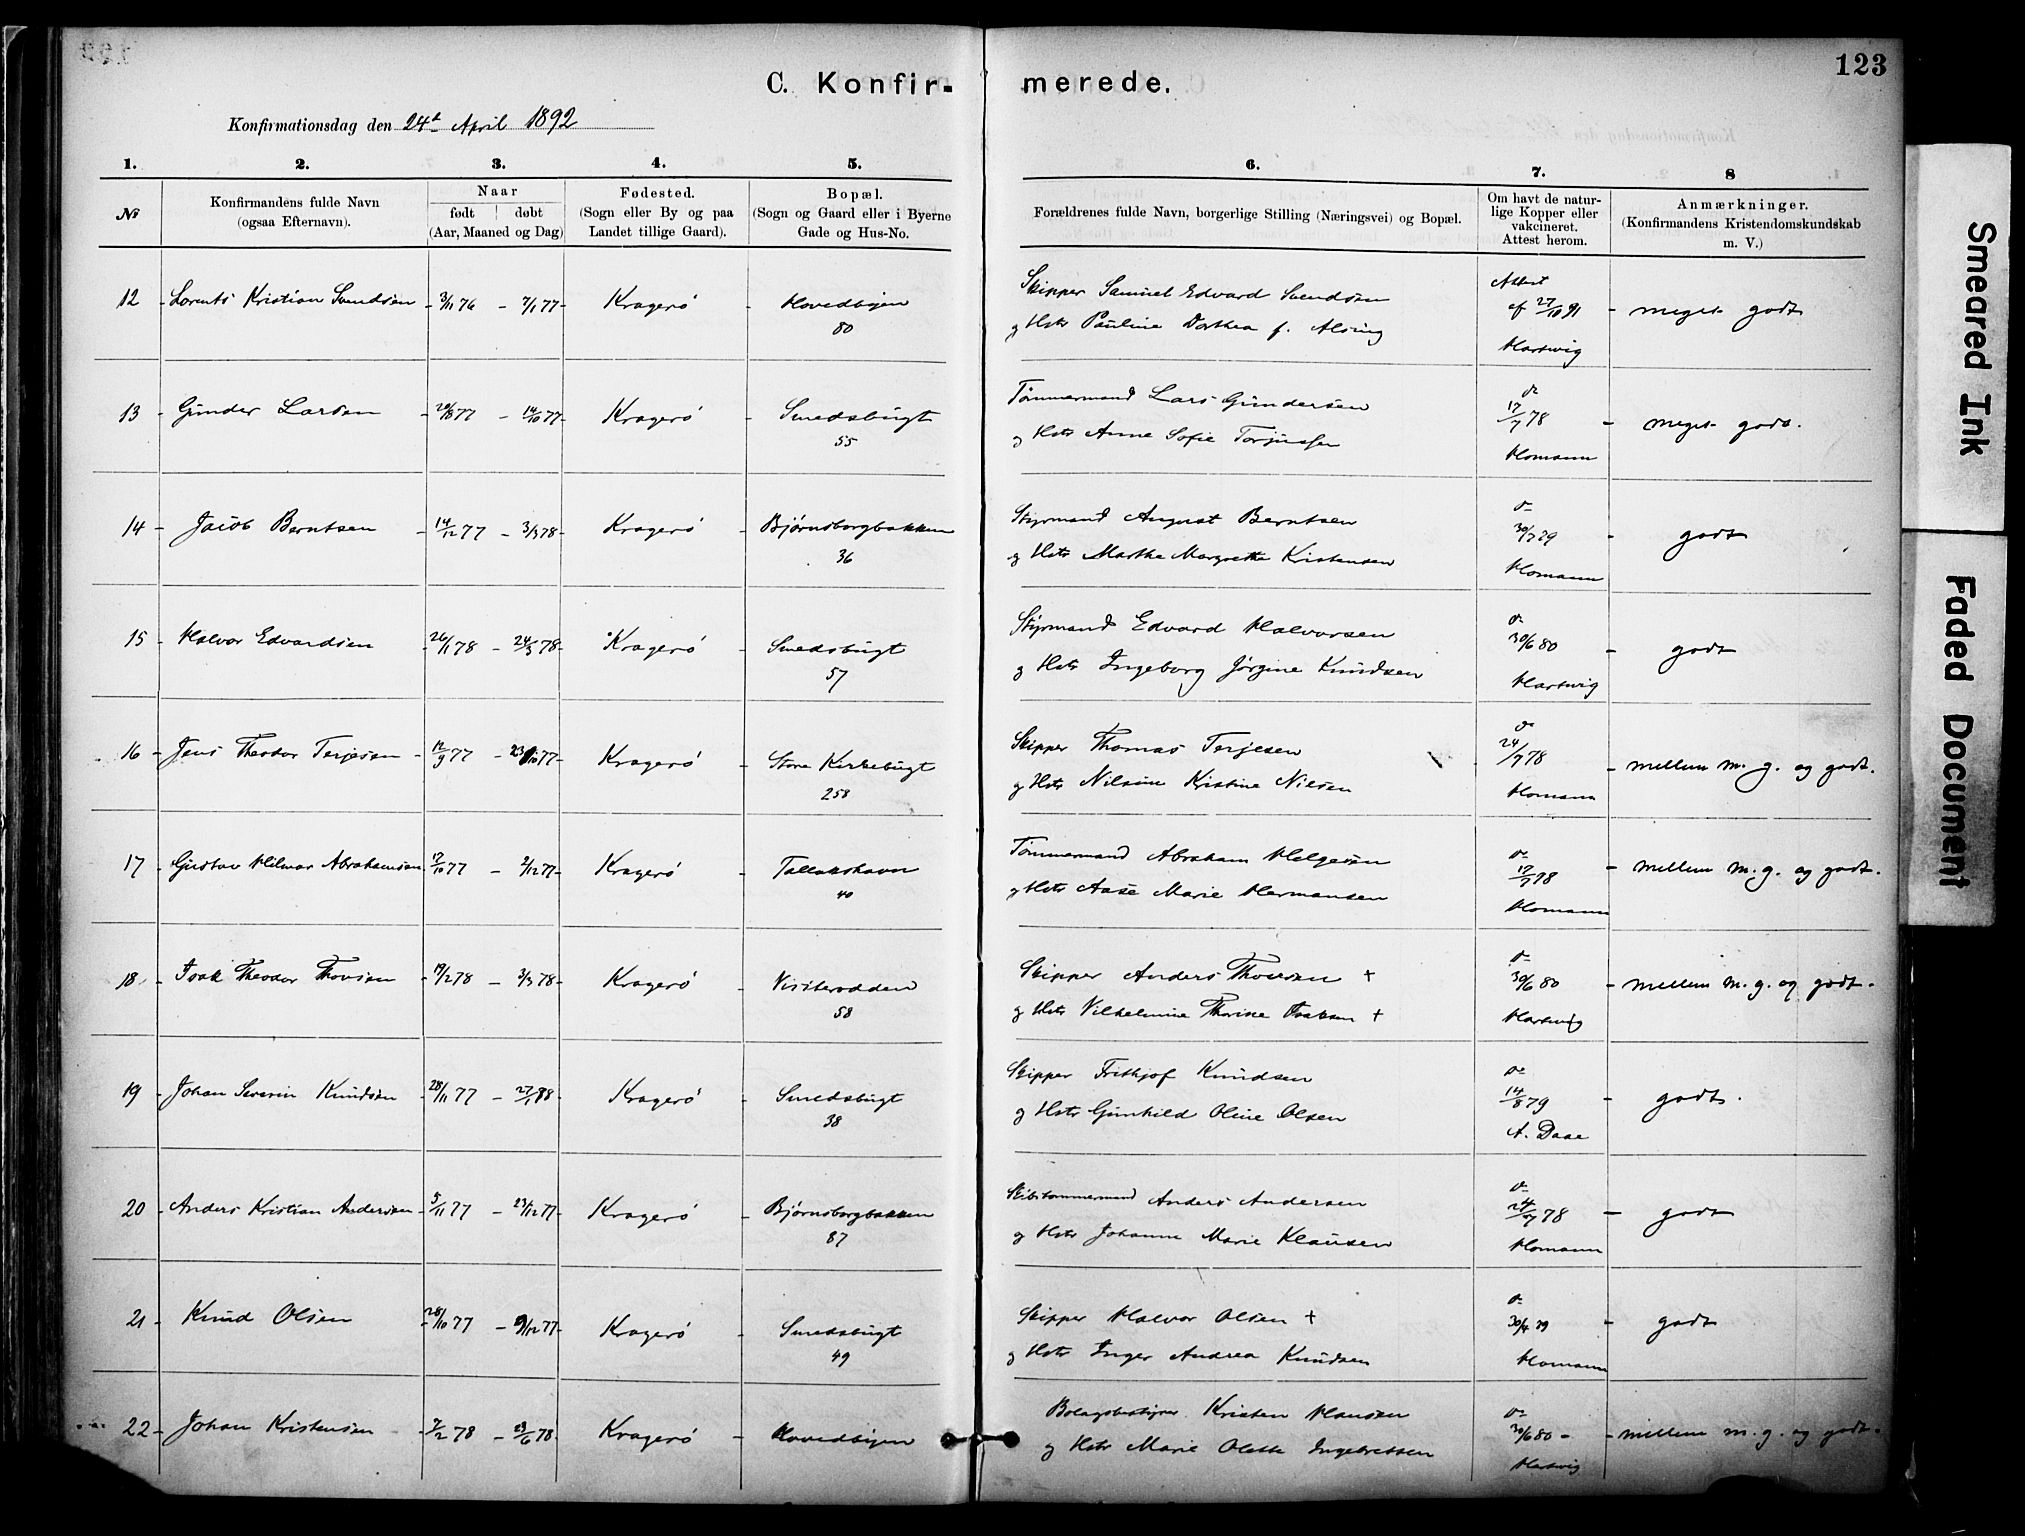 123
C. Konfir- merede.
Konfirmationsdag den 24de April 1892
1. 2. 3. 4. 5. 6. 7. 8
№
Konfirmandens fulde Navn
(ogsaa Efternavn).
Naar
født døbt
(Aar, Maaned og Dag)
Fødested.
(Sogn eller By og paa
Landet tillige Gaard).
Bopæl.
(Sogn og Gaard eller i Byerne
Gade og Hus-No.
Forældrenes fulde Navn, borgerlige Stilling (Næringsvei) og Bopæl.
Om havt de natur-
lige Kopper eller
vakcineret.
Attest herom.
Anmærkninger.
(Konfirmandens Kristendomskundskab
m. V.)
12 - Lorents Kristian Svendsen - 3/11 76 - 7/1 77 - Kragerö - Hovedbyen
80
Skipper Samuel Edvard Svendsen
og Hstr Pauline Dorthea f. Alsing
Attest
af 27/10 91
Hartwig
- meget godt
13 - Gunder Larsen - 77 - 14/10 77 - Kragerö - Smedsbugt
55
Tømmermand Lars Gundersen
og Hstr Anne Sofie Torjussen
do
17/7 78
Homann
- meget godt.
14 - Jacob Berntsen - 14/12 77 - 3/3 78 - Kragerö - Bjørnsborgbakken
36
Styrmand August Berntsen
og Hstr Marthe Margrethe Kristensen
do
30/7 79
Homann
- godt
15 - Halvor Edvardsen - 26/1 78 - 24/3 78 - Kragerö - Smedsbugt
57
Styrmand Edvard Halvorsen
og Hstr Ingeborg Jørgine Knudsen
do
30/6 80
Hartwig
- godt
16 - Jens Theodor Terjesen - 12/9 77 - 23/10 77 - Kragerö - Store Kirkebugt
258
Skipper Thomas Terjesen
og Hstr Nilsine Kristine Nilsen
do
24/7 78
Homann
- mellem m. g. og godt.
17 - Gustav Hilmar Abrahamsen 12/10 77 - 2/12 77 - Kragerö - Tallakshavn
40
Tømmermand Abraham Helgesen
og Hstr Aase Marie Hermansen
do
17/7 78
Homann
- mellem m. g. og godt.
18 - Isak Theodor Thovsen - 19/2 78 - 3/3 78 - Kragerö - Visiterodden
58
Skipper Anders Thovsen +
og Hstr Vilhelmine Thorine Isaksen +
do
30/6 80
Hartwig
- mellem m. g. og godt.
19 - Johan Severin Knudsen - 28/11 77 - 27/1 88 - Kragerö - Smedsbugt
38
Skipper Frithjof Knudsen
og Hstr Gunhild Oline Olsen
do
14/8 79
A. Daae
- godt.
20 - Anders Kristian Andersen - 5/11 77 - 23/12 77 - Kragerö - Bjørnsborgbakken
87
Skibstømmermand Anders Andersen
og Hstr Johanne Marie Klausen
do
24/7 78
Homann
- godt
21 - Knud Olsen - 28/10 77 - 9/12 77 - Kragerö - Smedsbugt
49
Skipper Halvor Olsen +
og Hstr Inger Andrea Knudsen
do
30/4 79
Homann
- godt
22 - Johan Kristensen - 7/2 78 - 78 - Kragerö - Hovedbyen
Bolagsbestyrer Kristen Hansen
og Hstr Marie Olette Ingebretsen
do
30/6 80 -
Hartwig
- mellem m. g. og godt.
Smeared Ink
Faded Document